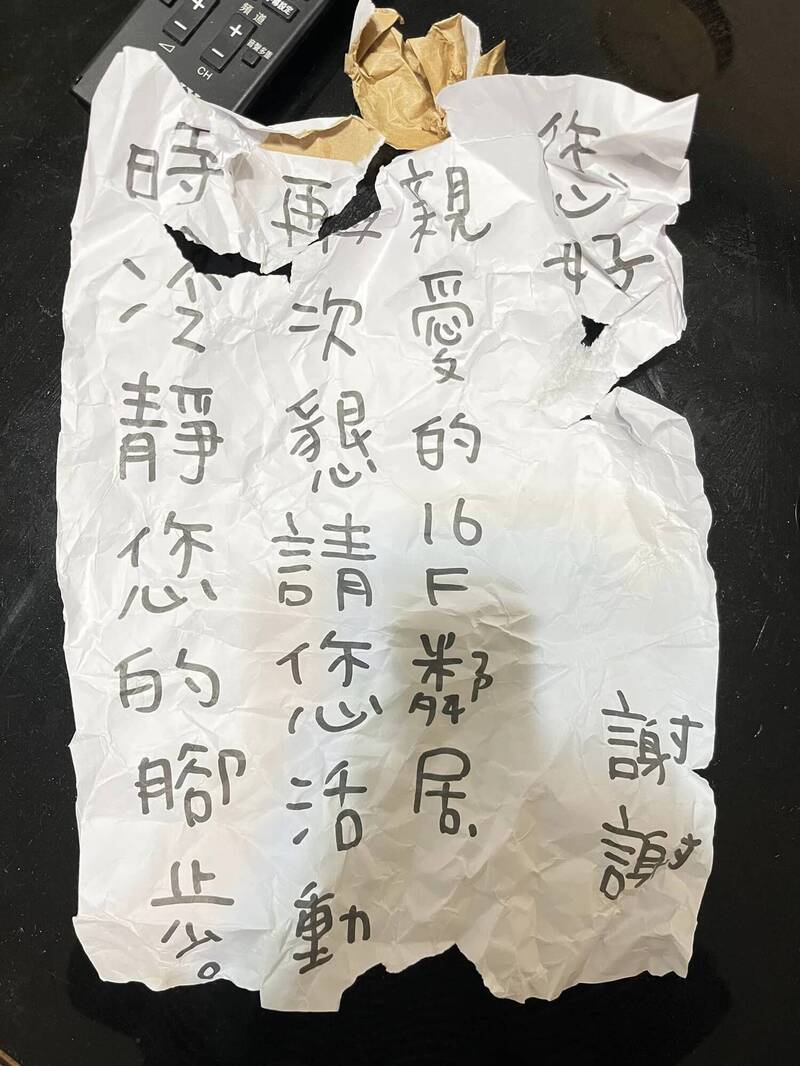 您好
親愛的16F鄰居，
再次懇請您活動
時冷靜您的腳步。
謝謝
頻道
CH